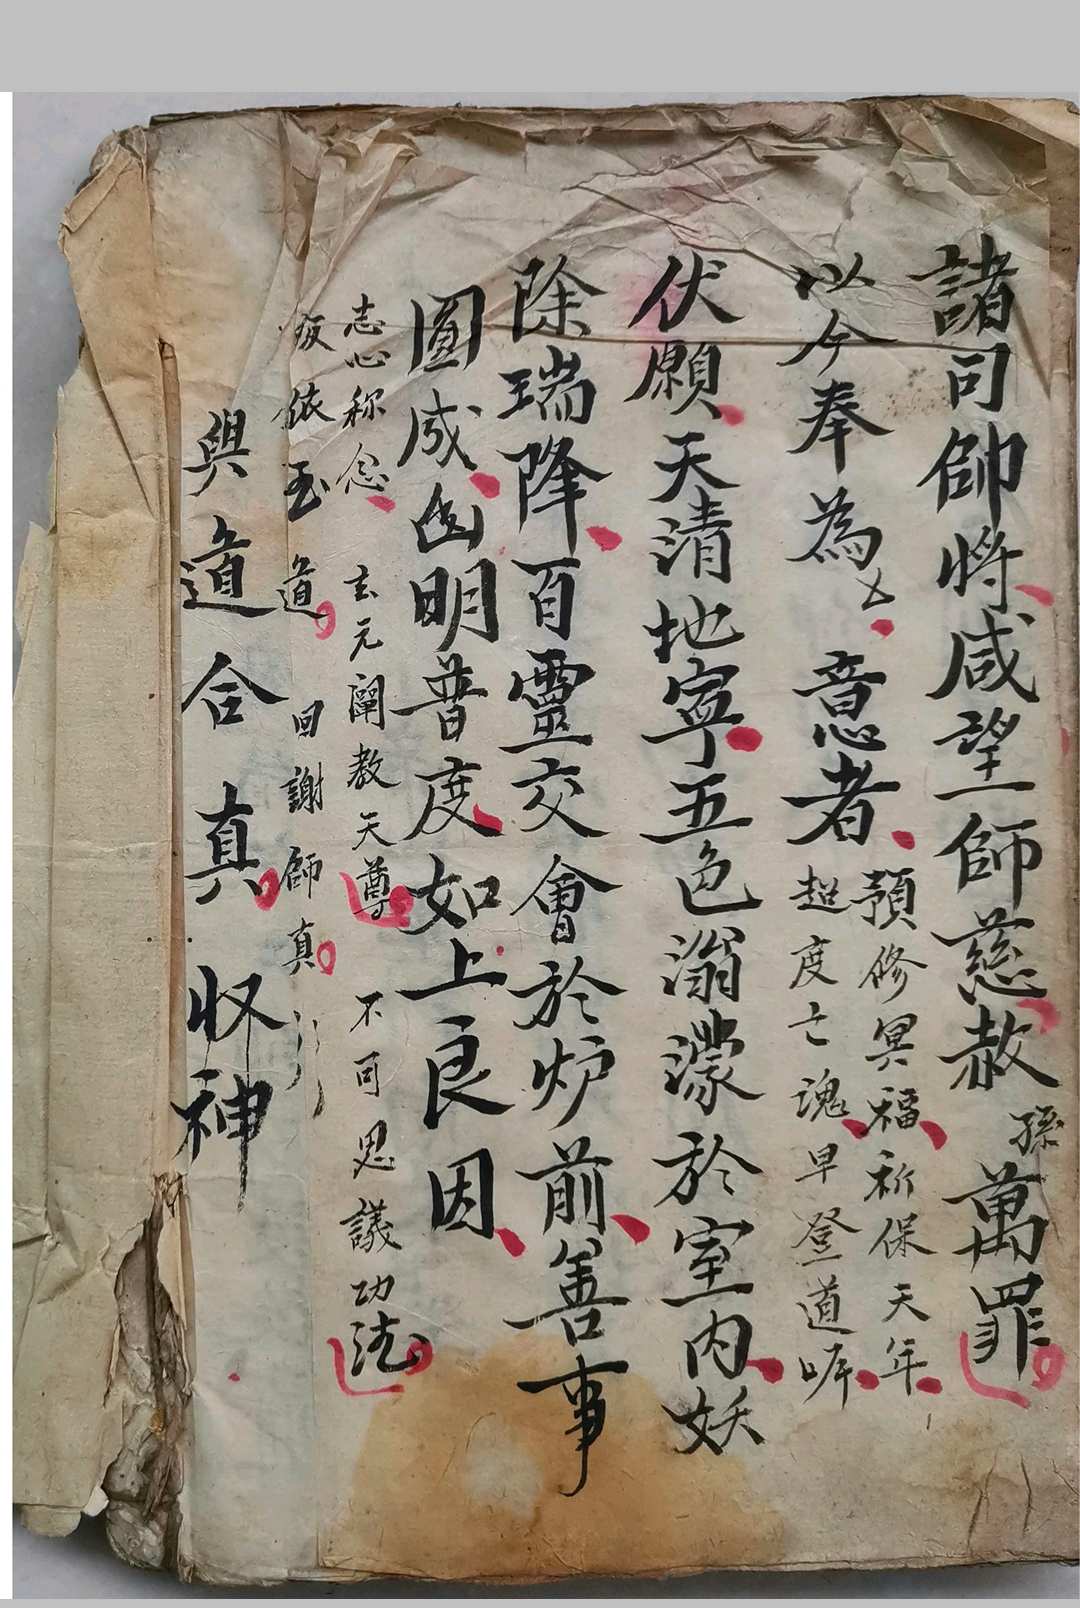 諸司帥將咸望師慈赦孫萬罪
以今奉為乂意者
預修冥福祈保天年
超度亡魂早登道岸
伏願天清地寧五色滃濛於室內妖
除瑞降百靈交會於炉前善事
圓成幽明普度如上良因
志心称念 玄元闡教天尊 不可思議功德
皈依玉道 回謝師真
與道合真 收神